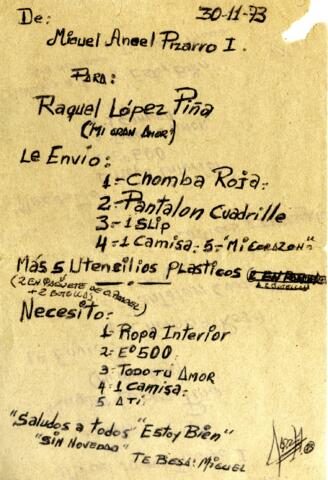 De: 30-11-73
Miguel Angel Pizarro I.
PARA:
Raquel López Piña
(MI GRAN AMOR)
Le Envío:
1=Chomba Roja=
2=Pantalon Cuadrille
3=1 SLIP
4=1 Camisa= 5="MI CORAZON"
Más 5 Utensilios Plasticos
(2 EN PAQUETE DE
+2 BOTELLAS)
Necesito:
1=Ropa Interior
2=Eº500=
3=TODO TÚ AMOR
4=1 Camisa=
5 A TÍ=
"Saludos a todos" "Estoy Bien"
"SIN NOVEDAD"
TE BESA: MIGUEL